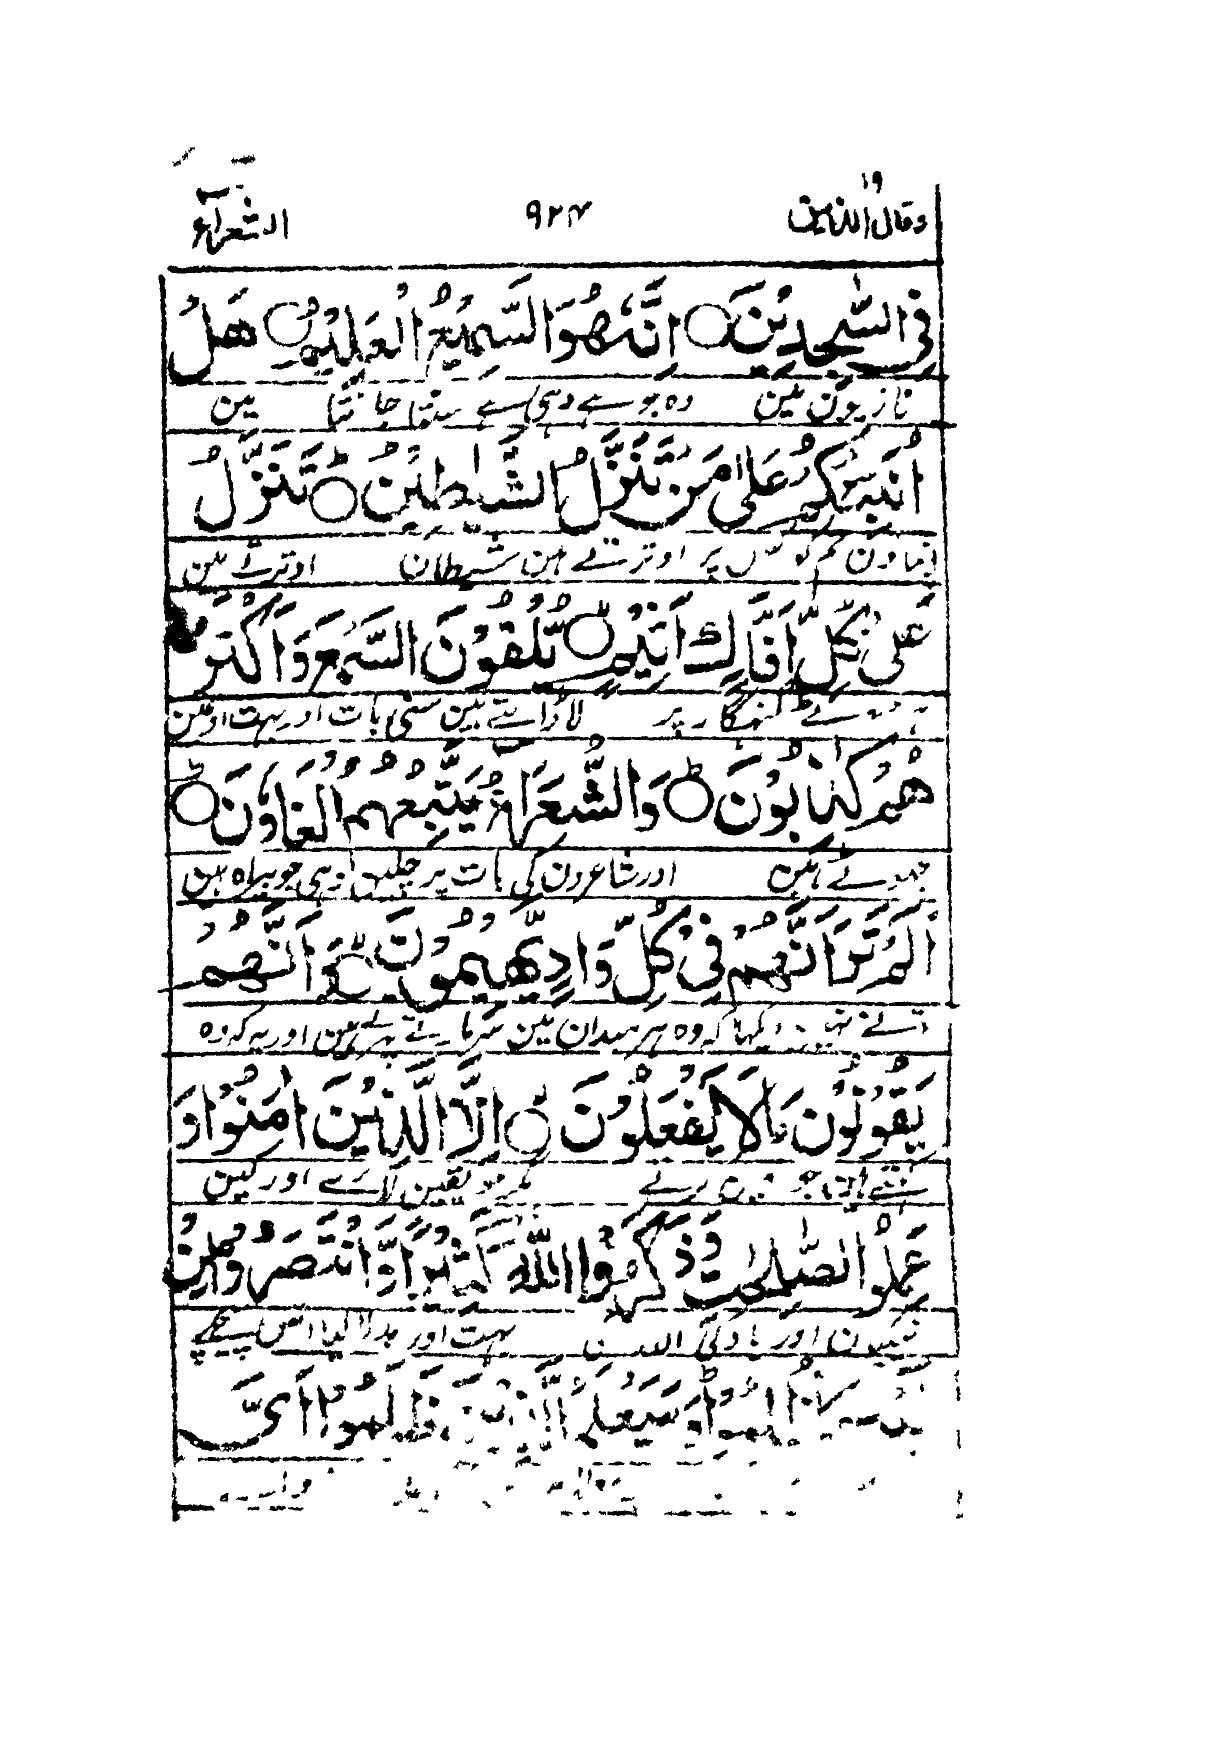 ۱۹
وقال الذین ۹۲۴ الشعرآء
فِی السّٰجِدِیْنَ ○ اِنَّهٗ هُوَ السَّمِیْعُ الْعَلِیْمُ ○ هَلْ
نمازیون مین وہ جو ہے وہی ہے سنتا جانتا مین
اُنَبِّئُكُمْ عَلٰی مَنْ تَنَزَّلُ الشَّیٰطِیْنُ ○ تَنَزَّلُ
بتاون تم کو کس پر اوترتے ہین شیطان اوترتے ہین
عَلٰی كُلِّ اَفَّاكٍ اَثِیْمٍ ○ یُّلْقُوْنَ السَّمْعَ وَاَكْثَرُ
گنہگار پر لا ڈالتے ہین سنی بات اور بہت اونمین
هُمْ كٰذِبُوْنَ ○ وَالشُّعَرَآءُ یَتَّبِعُهُمُ الْغَاوٗنَ ○
جھوٹے ہین اور شاعرون کی بات پر چلین وہی جو بیراہ ہین
اَلَمْ تَرَ اَنَّهُمْ فِیْ كُلِّ وَادٍ یَّهِیْمُوْنَ ○ وَاَنَّهُمْ
دیکھا کہ وہ ہر میدان مین سر مارتے پھرتے ہین اور یہ کہ وہ
یَقُوْلُوْنَ مَا لَا یَفْعَلُوْنَ ○ اِلَّا الَّذِیْنَ اٰمَنُوْا وَ
جو نہین کرتے مگر جو یقین لائے اور کین
عَمِلُوا الصّٰلِحٰتِ وَذَكَرُوا اللّٰهَ كَثِیْرًا وَّانْتَصَرُوْا مِنْ
نیکیان اور یاد کی اللہ کی بہت اور بدلا لیا اس پیچھے
بَعْدِ مَا ظُلِمُوْا وَسَیَعْلَمُ الَّذِیْنَ ظَلَمُوْا اَیَّ